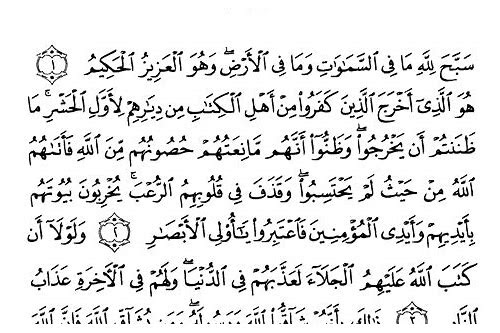 سَبَّحَ لِلَّهِ مَا فِى السَّمَٰوَٰتِ وَمَا فِى الْأَرْضِ ۖ وَهُوَ الْعَزِيزُ الْحَكِيمُ ۝١
هُوَ الَّذِىٓ أَخْرَجَ الَّذِينَ كَفَرُوا۟ مِنْ أَهْلِ الْكِتَٰبِ مِن دِيَٰرِهِمْ لِأَوَّلِ الْحَشْرِ ۚ مَا
ظَنَنتُمْ أَن يَخْرُجُوا۟ ۖ وَظَنُّوٓا۟ أَنَّهُم مَّانِعَتُهُمْ حُصُونُهُم مِّنَ اللَّهِ فَأَتَىٰهُمُ
اللَّهُ مِنْ حَيْثُ لَمْ يَحْتَسِبُوا۟ ۖ وَقَذَفَ فِى قُلُوبِهِمُ الرُّعْبَ ۚ يُخْرِبُونَ بُيُوتَهُم
بِأَيْدِيهِمْ وَأَيْدِى الْمُؤْمِنِينَ فَاعْتَبِرُوا۟ يَٰٓأُو۟لِى الْأَبْصَٰرِ ۝٢ وَلَوْلَآ أَن
كَتَبَ اللَّهُ عَلَيْهِمُ الْجَلَآءَ لَعَذَّبَهُمْ فِى الدُّنْيَا ۖ وَلَهُمْ فِى الْءَاخِرَةِ عَذَابُ
النَّارِ ۝٣ ذَٰلِكَ بِأَنَّهُمْ شَآقُّوا۟ اللَّهَ وَرَسُولَهُۥ ۖ وَمَن يُشَآقِّ اللَّهَ فَإِنَّ اللَّهَ